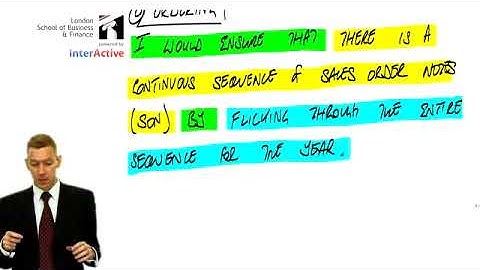 London
School of Business
& Finance
powered by
interActive
(i) ORDERING
I WOULD ENSURE THAT THERE IS A
CONTINUOUS SEQUENCE OF SALES ORDER NOTES
(SON) BY FLICKING THROUGH THE ENTIRE
SEQUENCE FOR THE YEAR.